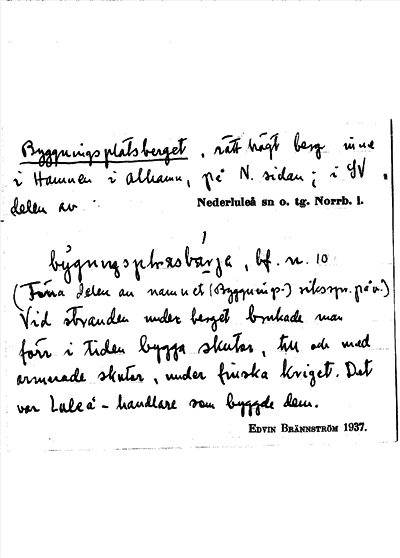 Byggningsplatsberget, rätt högt berg inne
i Hamnen i Alhamn, på N. sidan; i SV
delen av
Nederluleå sn o. tg. Norrb. l.
bygningsplassbärja, bf. n. 10
(Förra delen av namnet (Byggnings-) riksspr. påv.)
Vid stranden under berget brukade man
förr i tiden bygga skutor, till och med
armerade skutor, under finska kriget. Det
var Luleå-handlare som byggde dem.
EDVIN BRÄNNSTRÖM 1937.